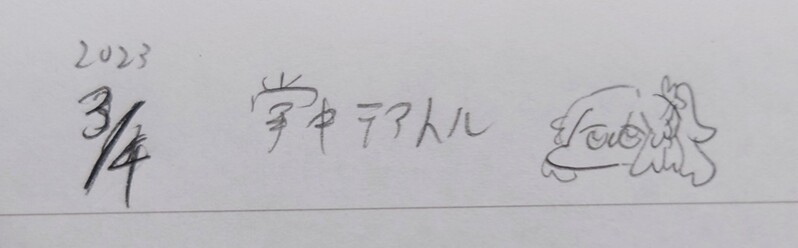 2023
3/4 学中テアトル